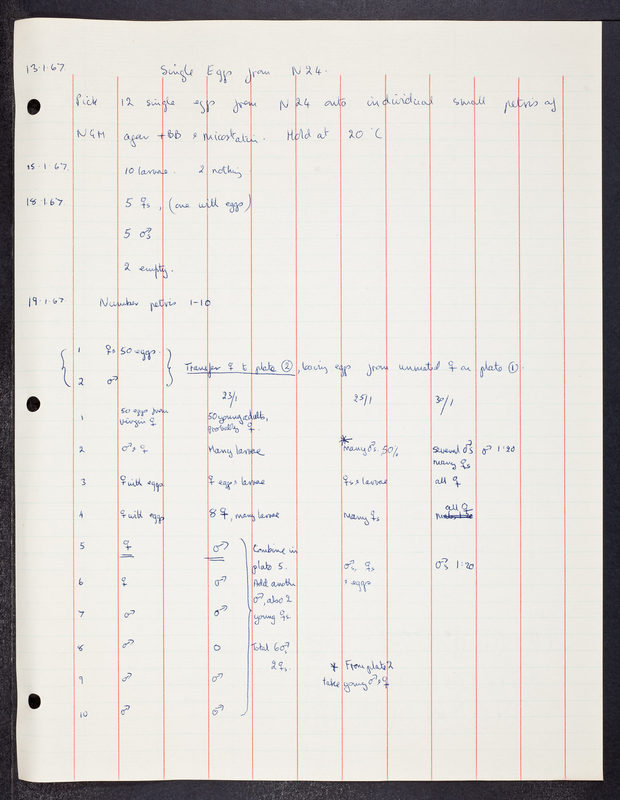 13.1.67. Single Eggs from N24.
Pick 12 single eggs from N24 onto individual small petris of
NGM agar + BB & micostatin. Hold at 20 °C
15.1.67. 10 larvae. 2 nothing
18.1.67 5 ♀s, (one with eggs)
5 ♂s
2 empty.
19.1.67. Number petris 1-10
1 ♀s 50 eggs.
2 ♂
Transfer ♀ to plate ②, leaving eggs from unmated ♀ on plate ①.
23/1 25/1 30/1
1 50 eggs from virgin ♀ 50 young adults, probably ♀.
2 ♂ & ♀ Many larvae * Many ♂s 50% Several ♂s ♂ 1:20
many ♀s
3 ♀ with eggs ♀ eggs & larvae ♀s & larvae all ♀
4 ♀ with eggs 8 ♀, many larvae many ♀s all ♀
5 ♀ ♂ Combine in
plate 5. ♂s, ♀s ♂s 1:20
6 ♀ ♂ Add another & eggs
♂, also 2
7 ♂ ♂ young ♀s.
8 ♂ 0 Total 6♂,
2♀s. * From plate 2
9 ♂ ♂ take young ♂ & ♀
10 ♂ ♂